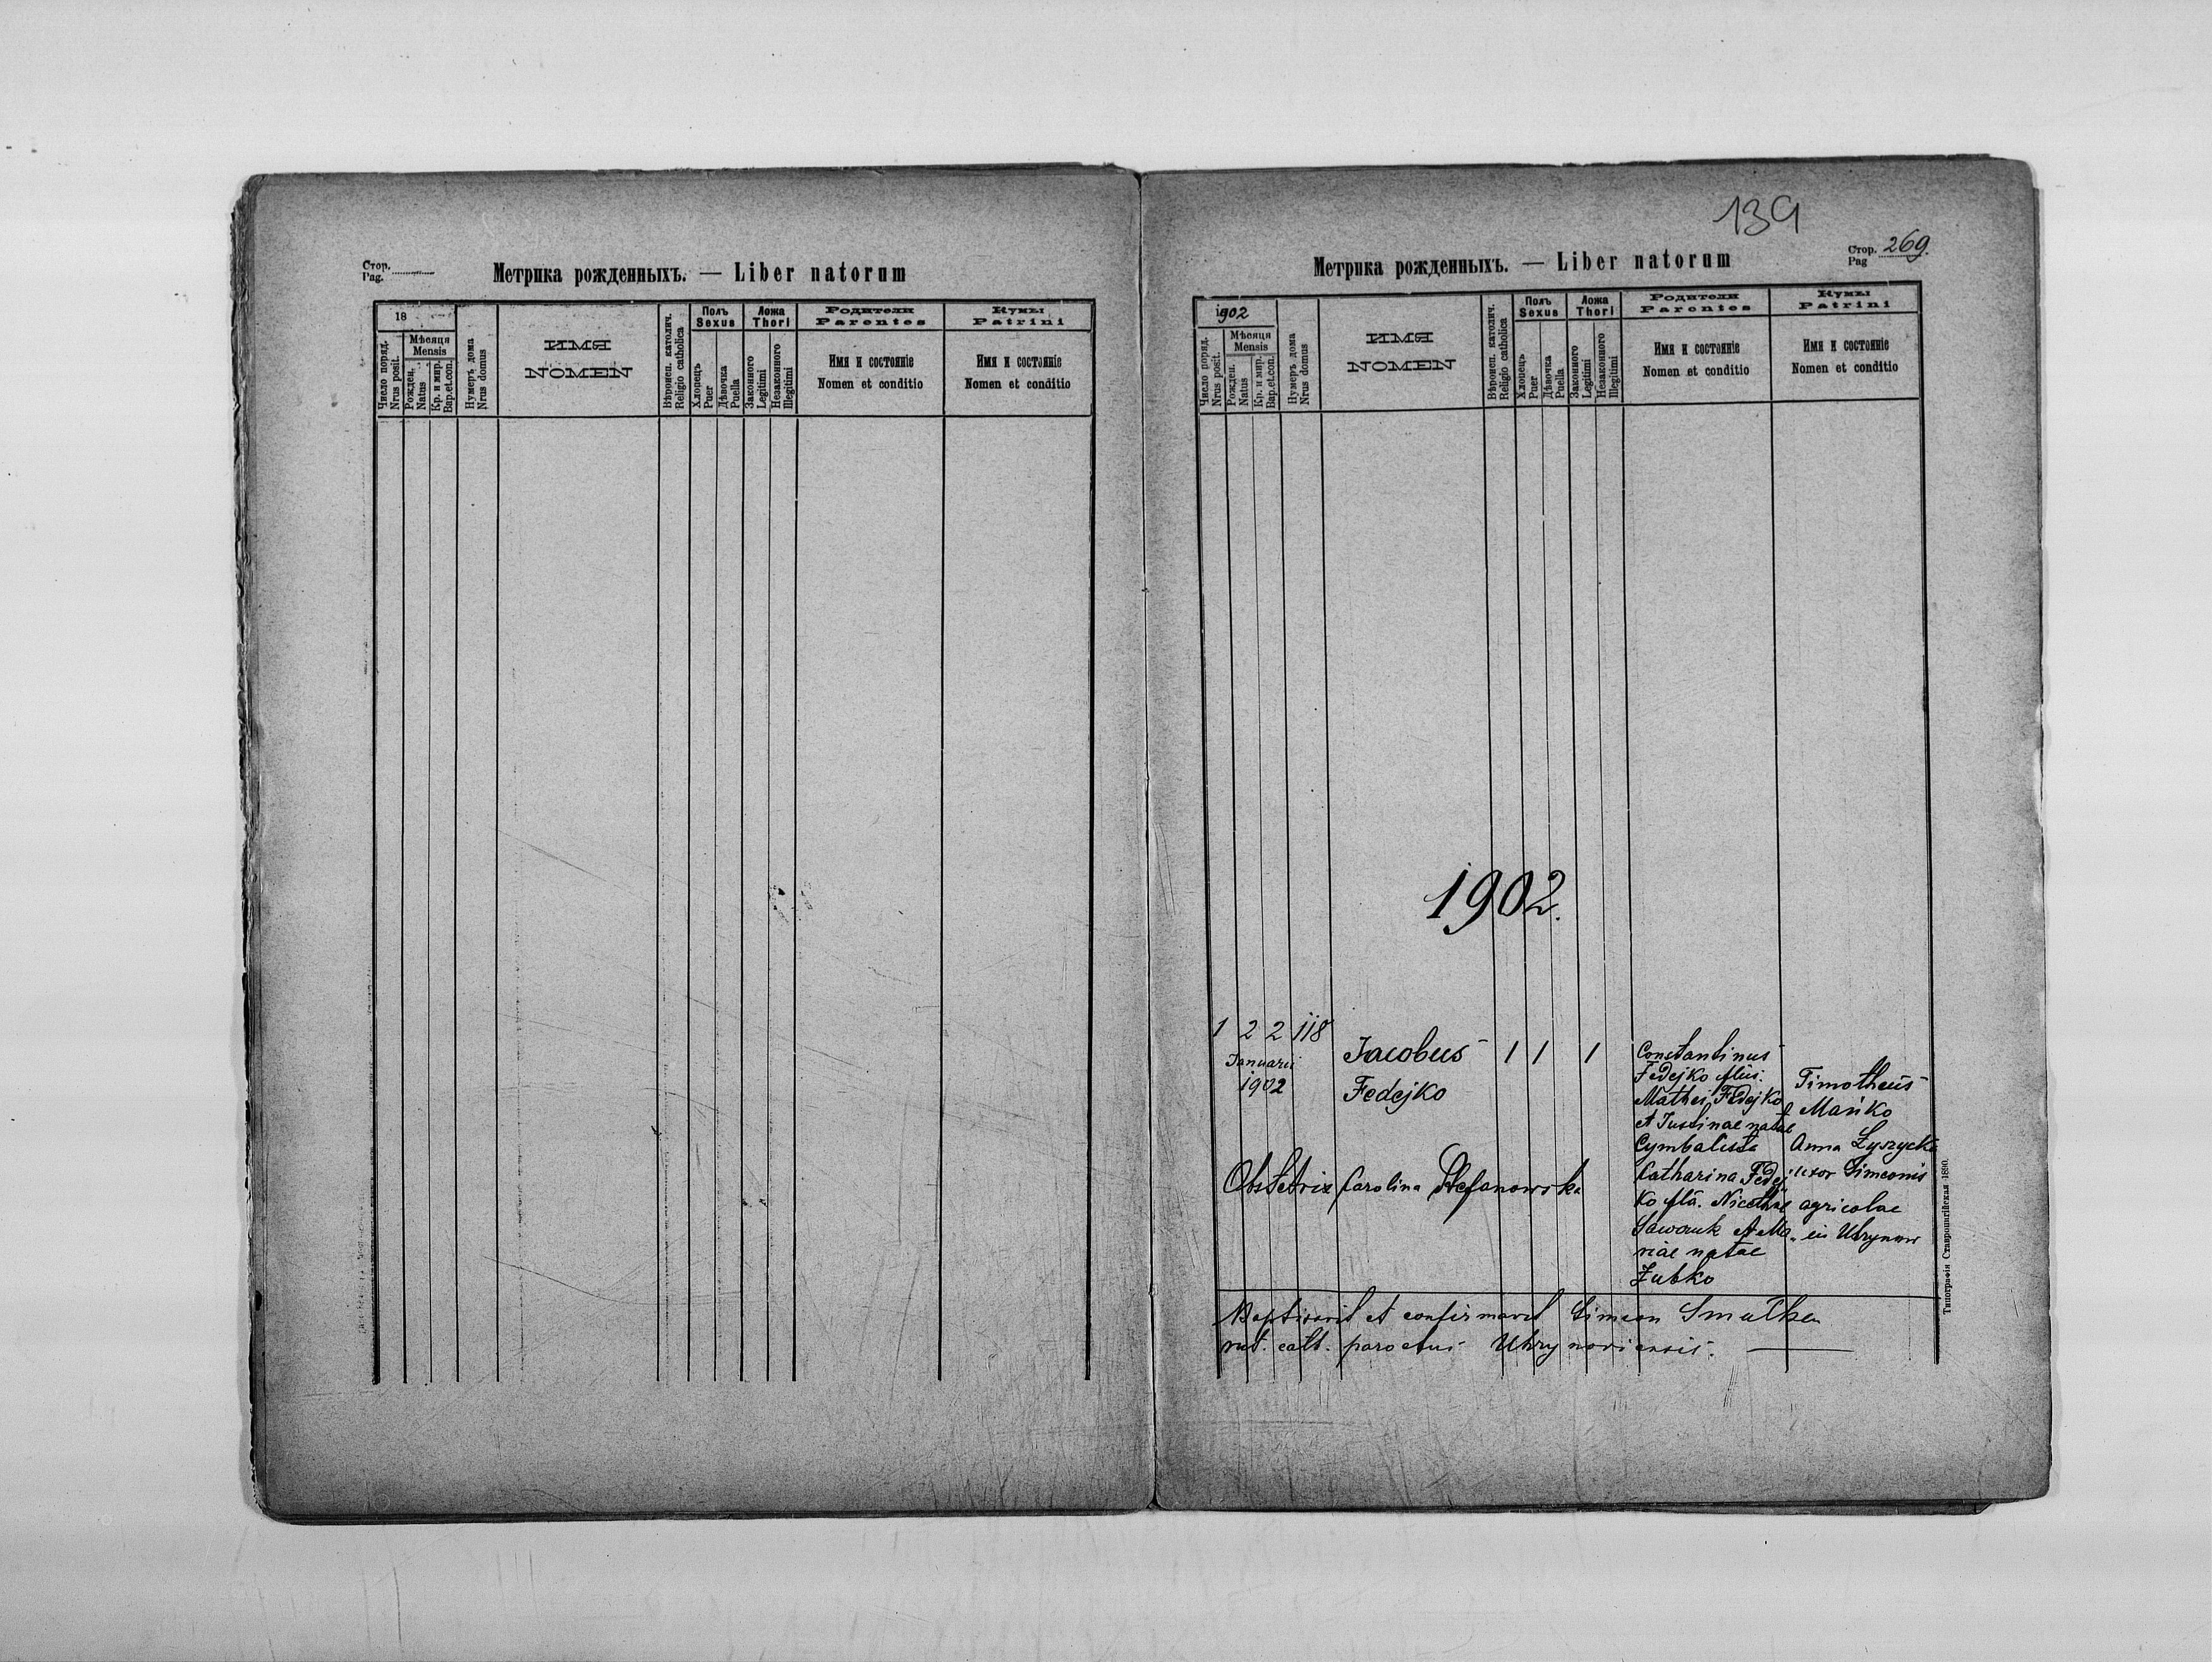 Стор.
Pag.
Метрика рожденныхъ. — Liber natorum
18
Число поряд.
Nrus posit.
Мѣсяця
Mensis
Рожден.
Natus
Кр. и мир.
Bap.et.con.
Нумеръ дома
Nrus domus
ИМЯ
NOMEN
Вѣроисп. католич.
Religio catholica
Полъ
Sexus
Хлопецъ
Puer
Дѣвочка
Puella
Ложа
Thori
Законного
Legitimi
Незаконного
Illegitimi
Родители
Parentes
Имя и состоянiе
Nomen et conditio
Кумы
Patrini
Имя и состоянiе
Nomen et conditio
139
Стор. 269.
Pag
Метрика рожденныхъ. — Liber natorum
1902
Число поряд.
Nrus posit.
Мѣсяця
Mensis
Рожден.
Natus
Кр. и мир.
Bap.et.con.
Нумеръ дома
Nrus domus
ИМЯ
NOMEN
Вѣроисп. католич.
Religio catholica
Полъ
Sexus
Хлопецъ
Puer
Дѣвочка
Puella
Ложа
Thori
Законного
Legitimi
Незаконного
Illegitimi
Родители
Parentes
Имя и состоянiе
Nomen et conditio
Кумы
Patrini
Имя и состоянiе
Nomen et conditio
1902.
1 2 2 118
Januarii
1902
Jacobus
Fedejko
1 1 1
Constantinus
Fedejko filius
Mathei Fedejko
et Justinae natae
Cymbalista
Catharina Fedej
ko fila. Nicethae
Sawczuk et Ma
riae natae
Zubko
Timotheus
Mańko
Anna Łyszycka
uxor Simeonis
agricolae
in Uhrynow
Obstetrix Carolina Stefanowska
Baptisavit et confirmavit Simeon
rut. cath. parochus Uhrynoviensis.
Типографiя Ставропигiйская 1890.